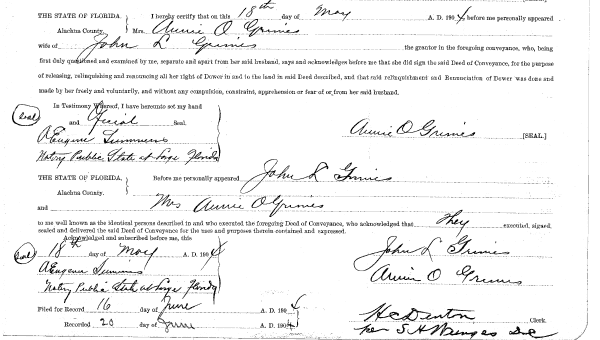 THE STATE OF FLORIDA, I hereby certify that on this 18th day of May A. D. 1904 before me personally appeared
Alachua County. Mrs. Annie O Grimes
wife of John L Grimes the grantor in the foregoing conveyance, who, being
first duly questioned and examined by me, separate and apart from her said husband, says and acknowledges before me that she did sign the said Deed of Conveyance, for the purpose
of releasing, relinquishing and renouncing all her right of Dower in and to the land in said Deed described, and that said relinquishment and Renunciation of Dower was done and
made by her freely and voluntarily, and without any compulsion, constraint, apprehension or fear of or from her said husband.
In Testimony Whereof, I have hereunto set my hand
Seal and Official Seal.
A Eugene Summers Annie O Grimes [SEAL.]
Notary Public State at Large Florida
THE STATE OF FLORIDA, Before me personally appeared John L Grimes
Alachua County.
and Mrs Annie O Grimes
to me well known as the identical persons described in and who executed the foregoing Deed of Conveyance, who acknowledged that They executed, signed,
sealed and delivered the said Deed of Conveyance for the uses and purposes therein contained and expressed.
Acknowledged and subscribed before me, this
Seal 18th day of May A. D. 1904 John L Grimes
A Eugene Summers Annie O Grimes
Notary Public State at Large Florida
Filed for Record 16 day of June A. D. 1904
H C Denton Clerk.
Recorded 20 day of June A. D. 1904 per S H Wienges D C